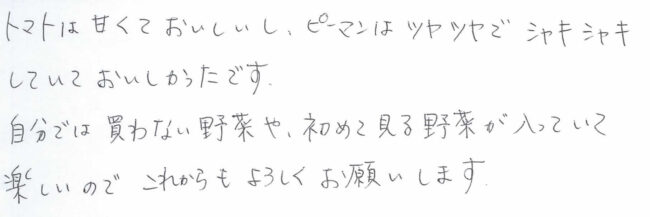 トマトは甘くておいしいし、ピーマンはツヤツヤでシャキシャキ
していておいしかったです.
自分では買わない野菜や、初めて見る野菜が入っていて
楽しいのでこれからもよろしくお願いします.